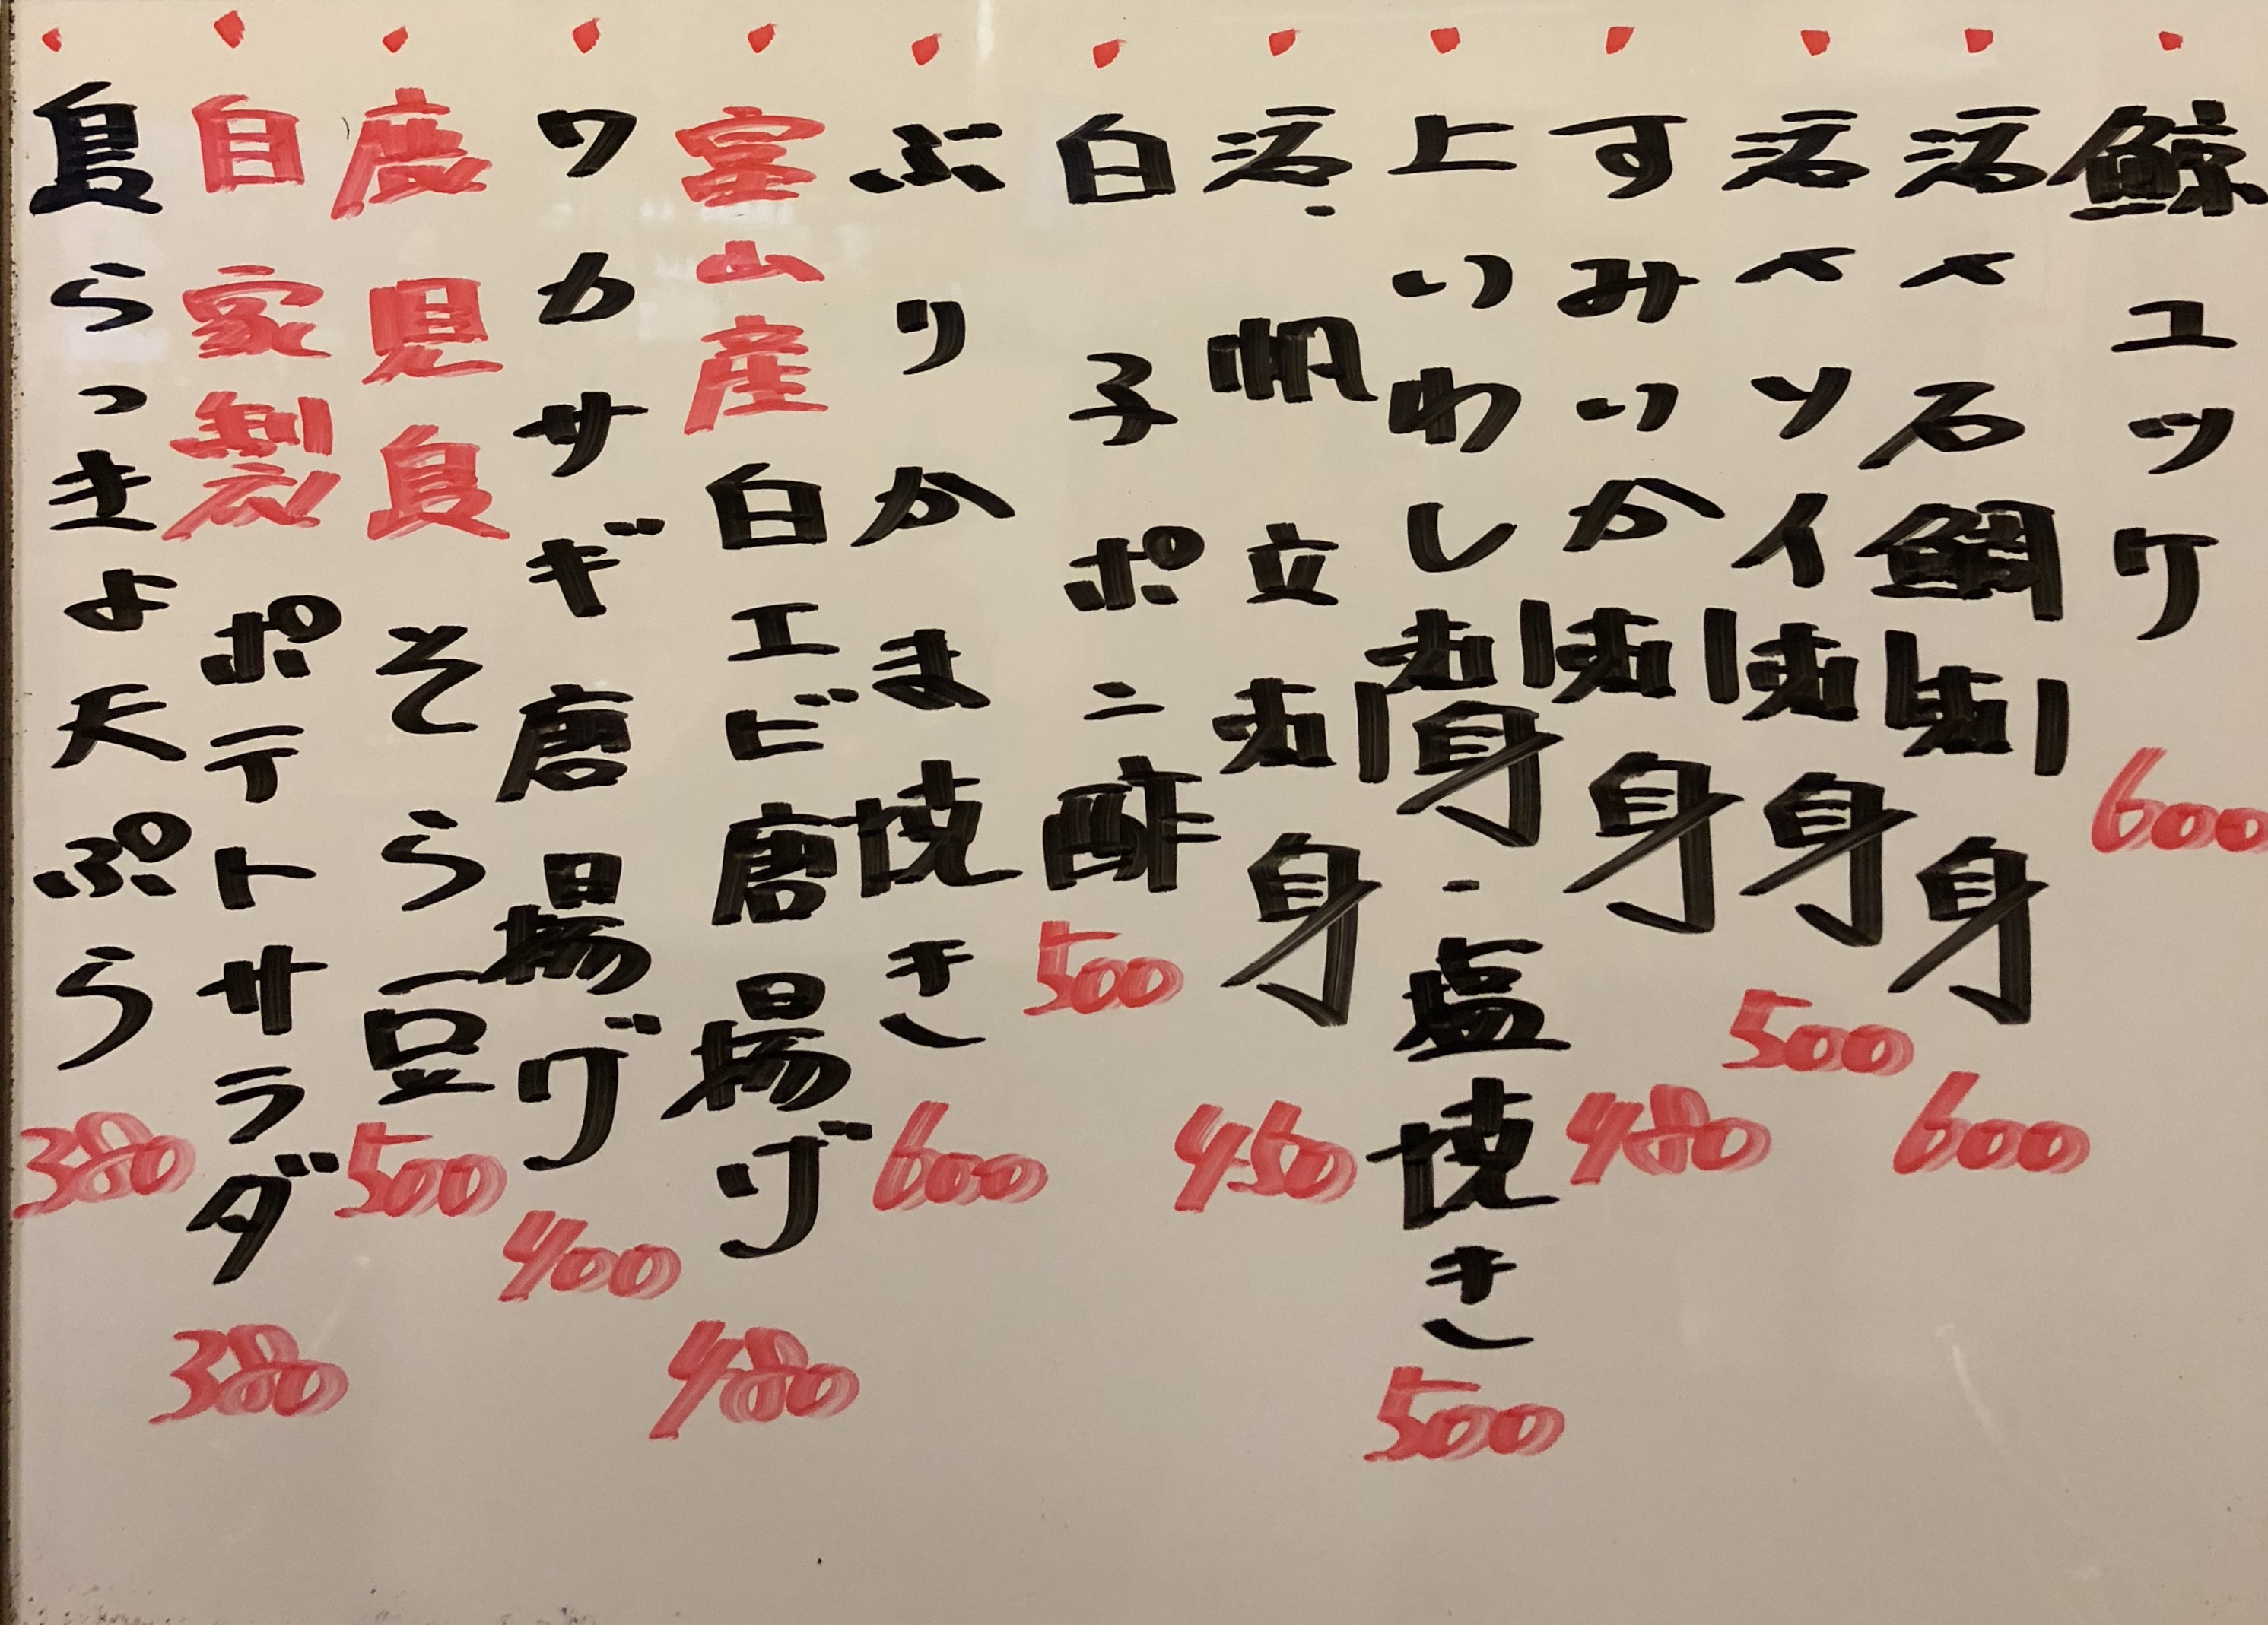 鯨ユッケ 600
活〆石鯛刺身 600
活〆ソイ刺身 500
すみいか刺身 480
上いわし刺身・塩焼き 500
活・帆立刺身 450
白子ポン酢 500
ぶりかま焼き 600
富山産白エビ唐揚げ 480
ワカサギ唐揚げ 400
鹿児島そら豆 500
自家製ポテトサラダ 380
島らっきょ天ぷら 380